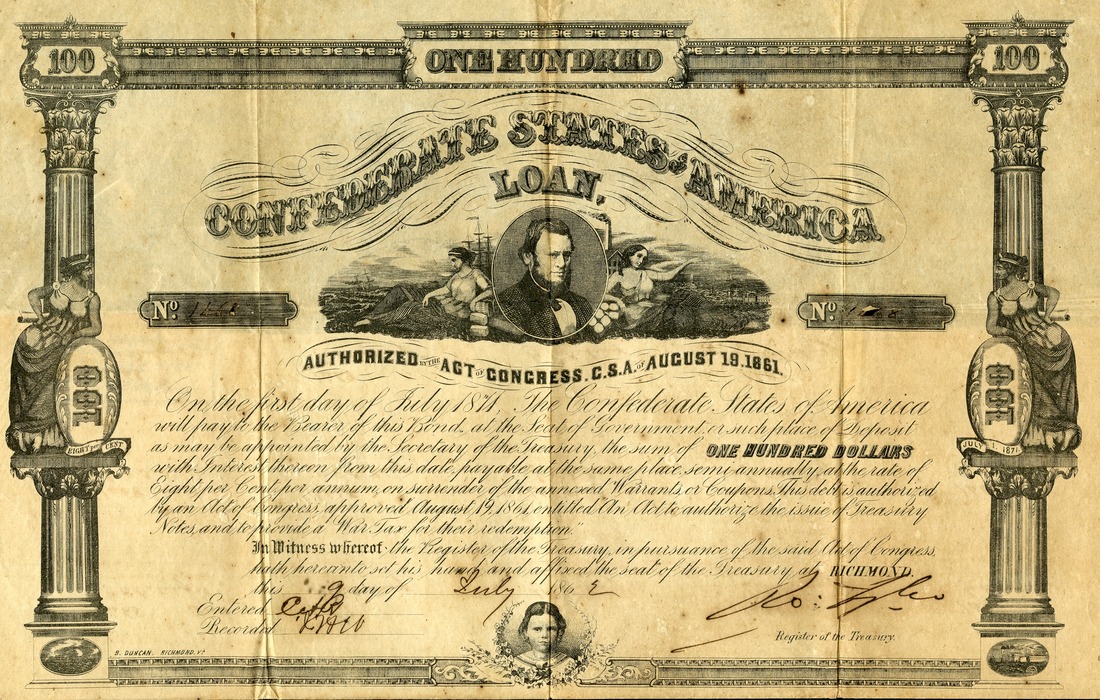 100
ONE HUNDRED
100
CONFEDERATE STATES OF AMERICA
LOAN,
No
No
AUTHORIZED BY THE ACT OF CONGRESS. C.S.A. OF AUGUST 19.1861.
On the first day of July 1871, The Confederate States of America
will pay to the Bearer of this Bond, at the Seat of Government, or such place of Deposit
as may be appointed by the Secretary of the Treasury, the sum of ONE HUNDRED DOLLARS
with Interest thereon from this date, payable at the same place, semi annually, at the rate of
Eight per Cent, per annum, on surrender of the annexed Warrants, or Coupons. This debt is authorized
by an Act of Congress, approved August 19, 1861, entitled "An Act to authorize the issue of Treasury
Notes, and to provide a War Tax for their redemption."
In Witness whereof the Register of the Treasury, in pursuance of the said Act of Congress,
hath hereunto set his hand and affixed the seal of the Treasury at RICHMOND.
this 9 day of July 1862
Entered
Recorded
Ro: Tyler
Register of the Treasury.
100
100
EIGHT PER CENT
JULY 1 1871
B. DUNCAN. RICHMOND, Va